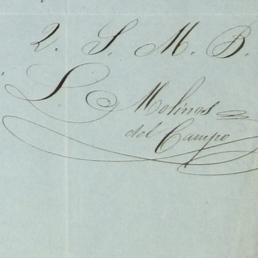 2. S. M. B.
L. Molinos
del Campo